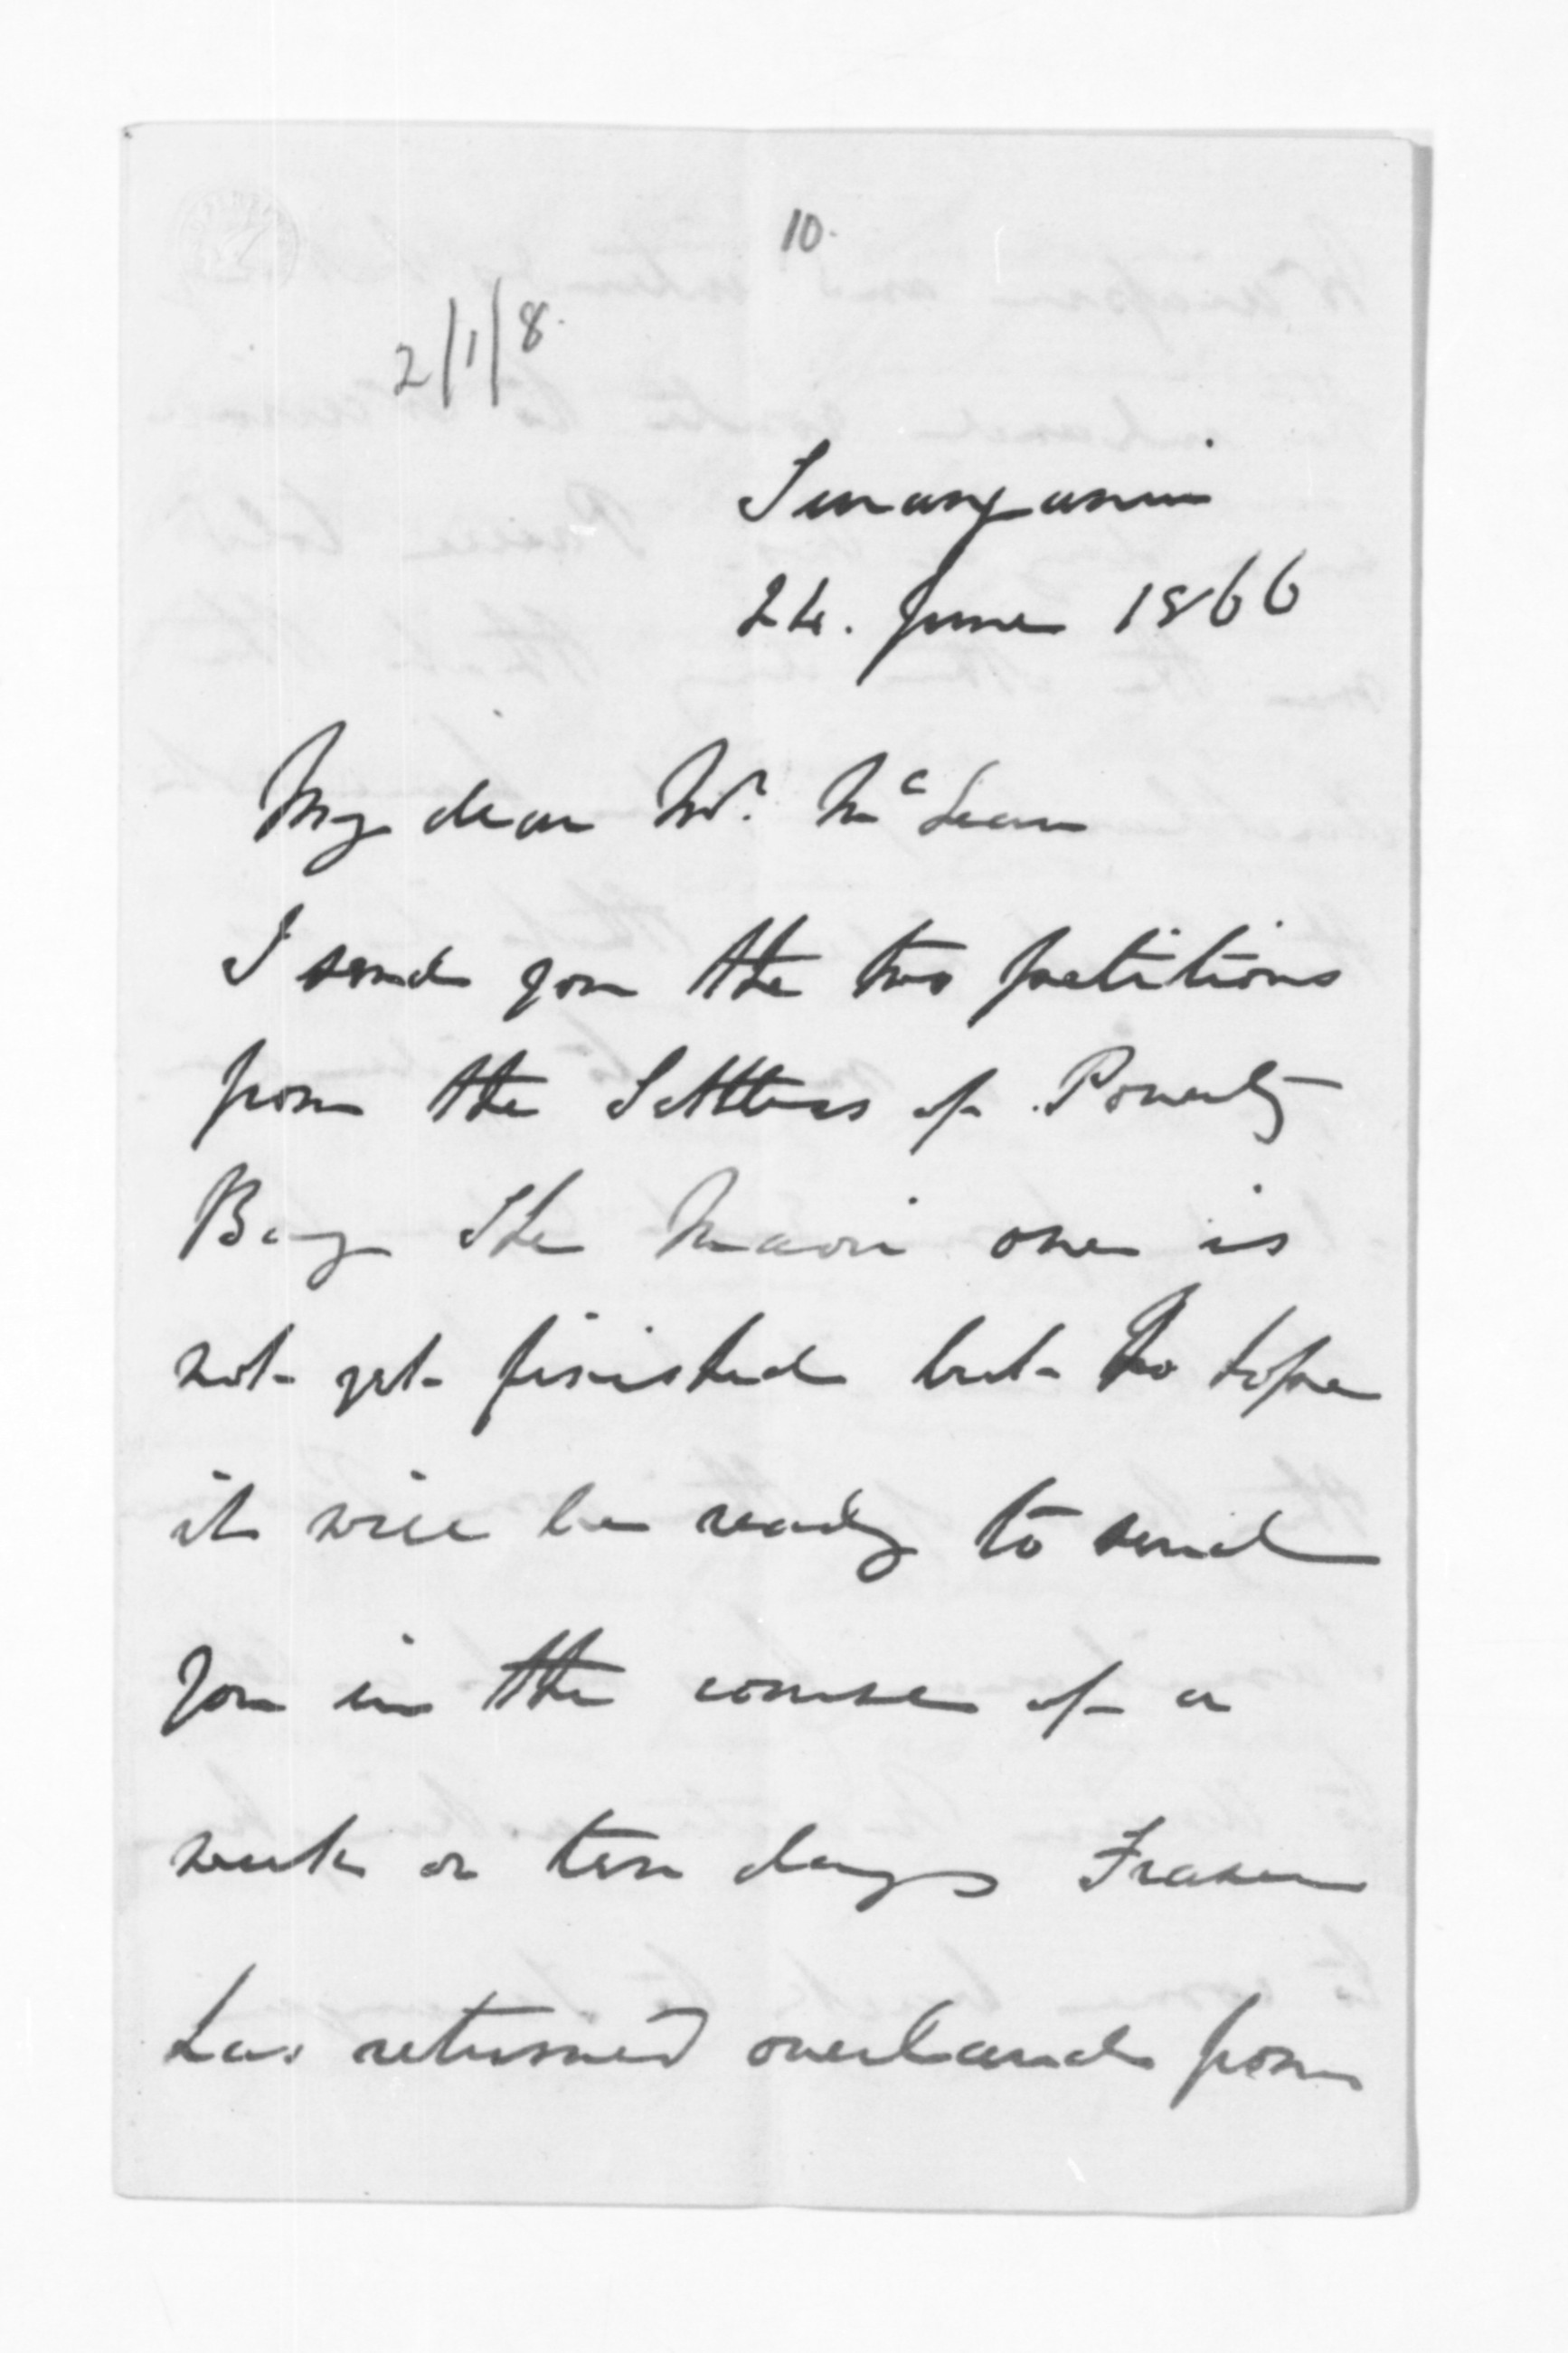 10.
2/1/8.
Turanganui
24. June 1866
My dear Mr. McLean
I send you the two petitions
from the Settlers of Poverty
Bay The Maori one is
not yet finished but I hope
it will be ready to send
you in the course of a
week or ten days Fraser
has returned overland from